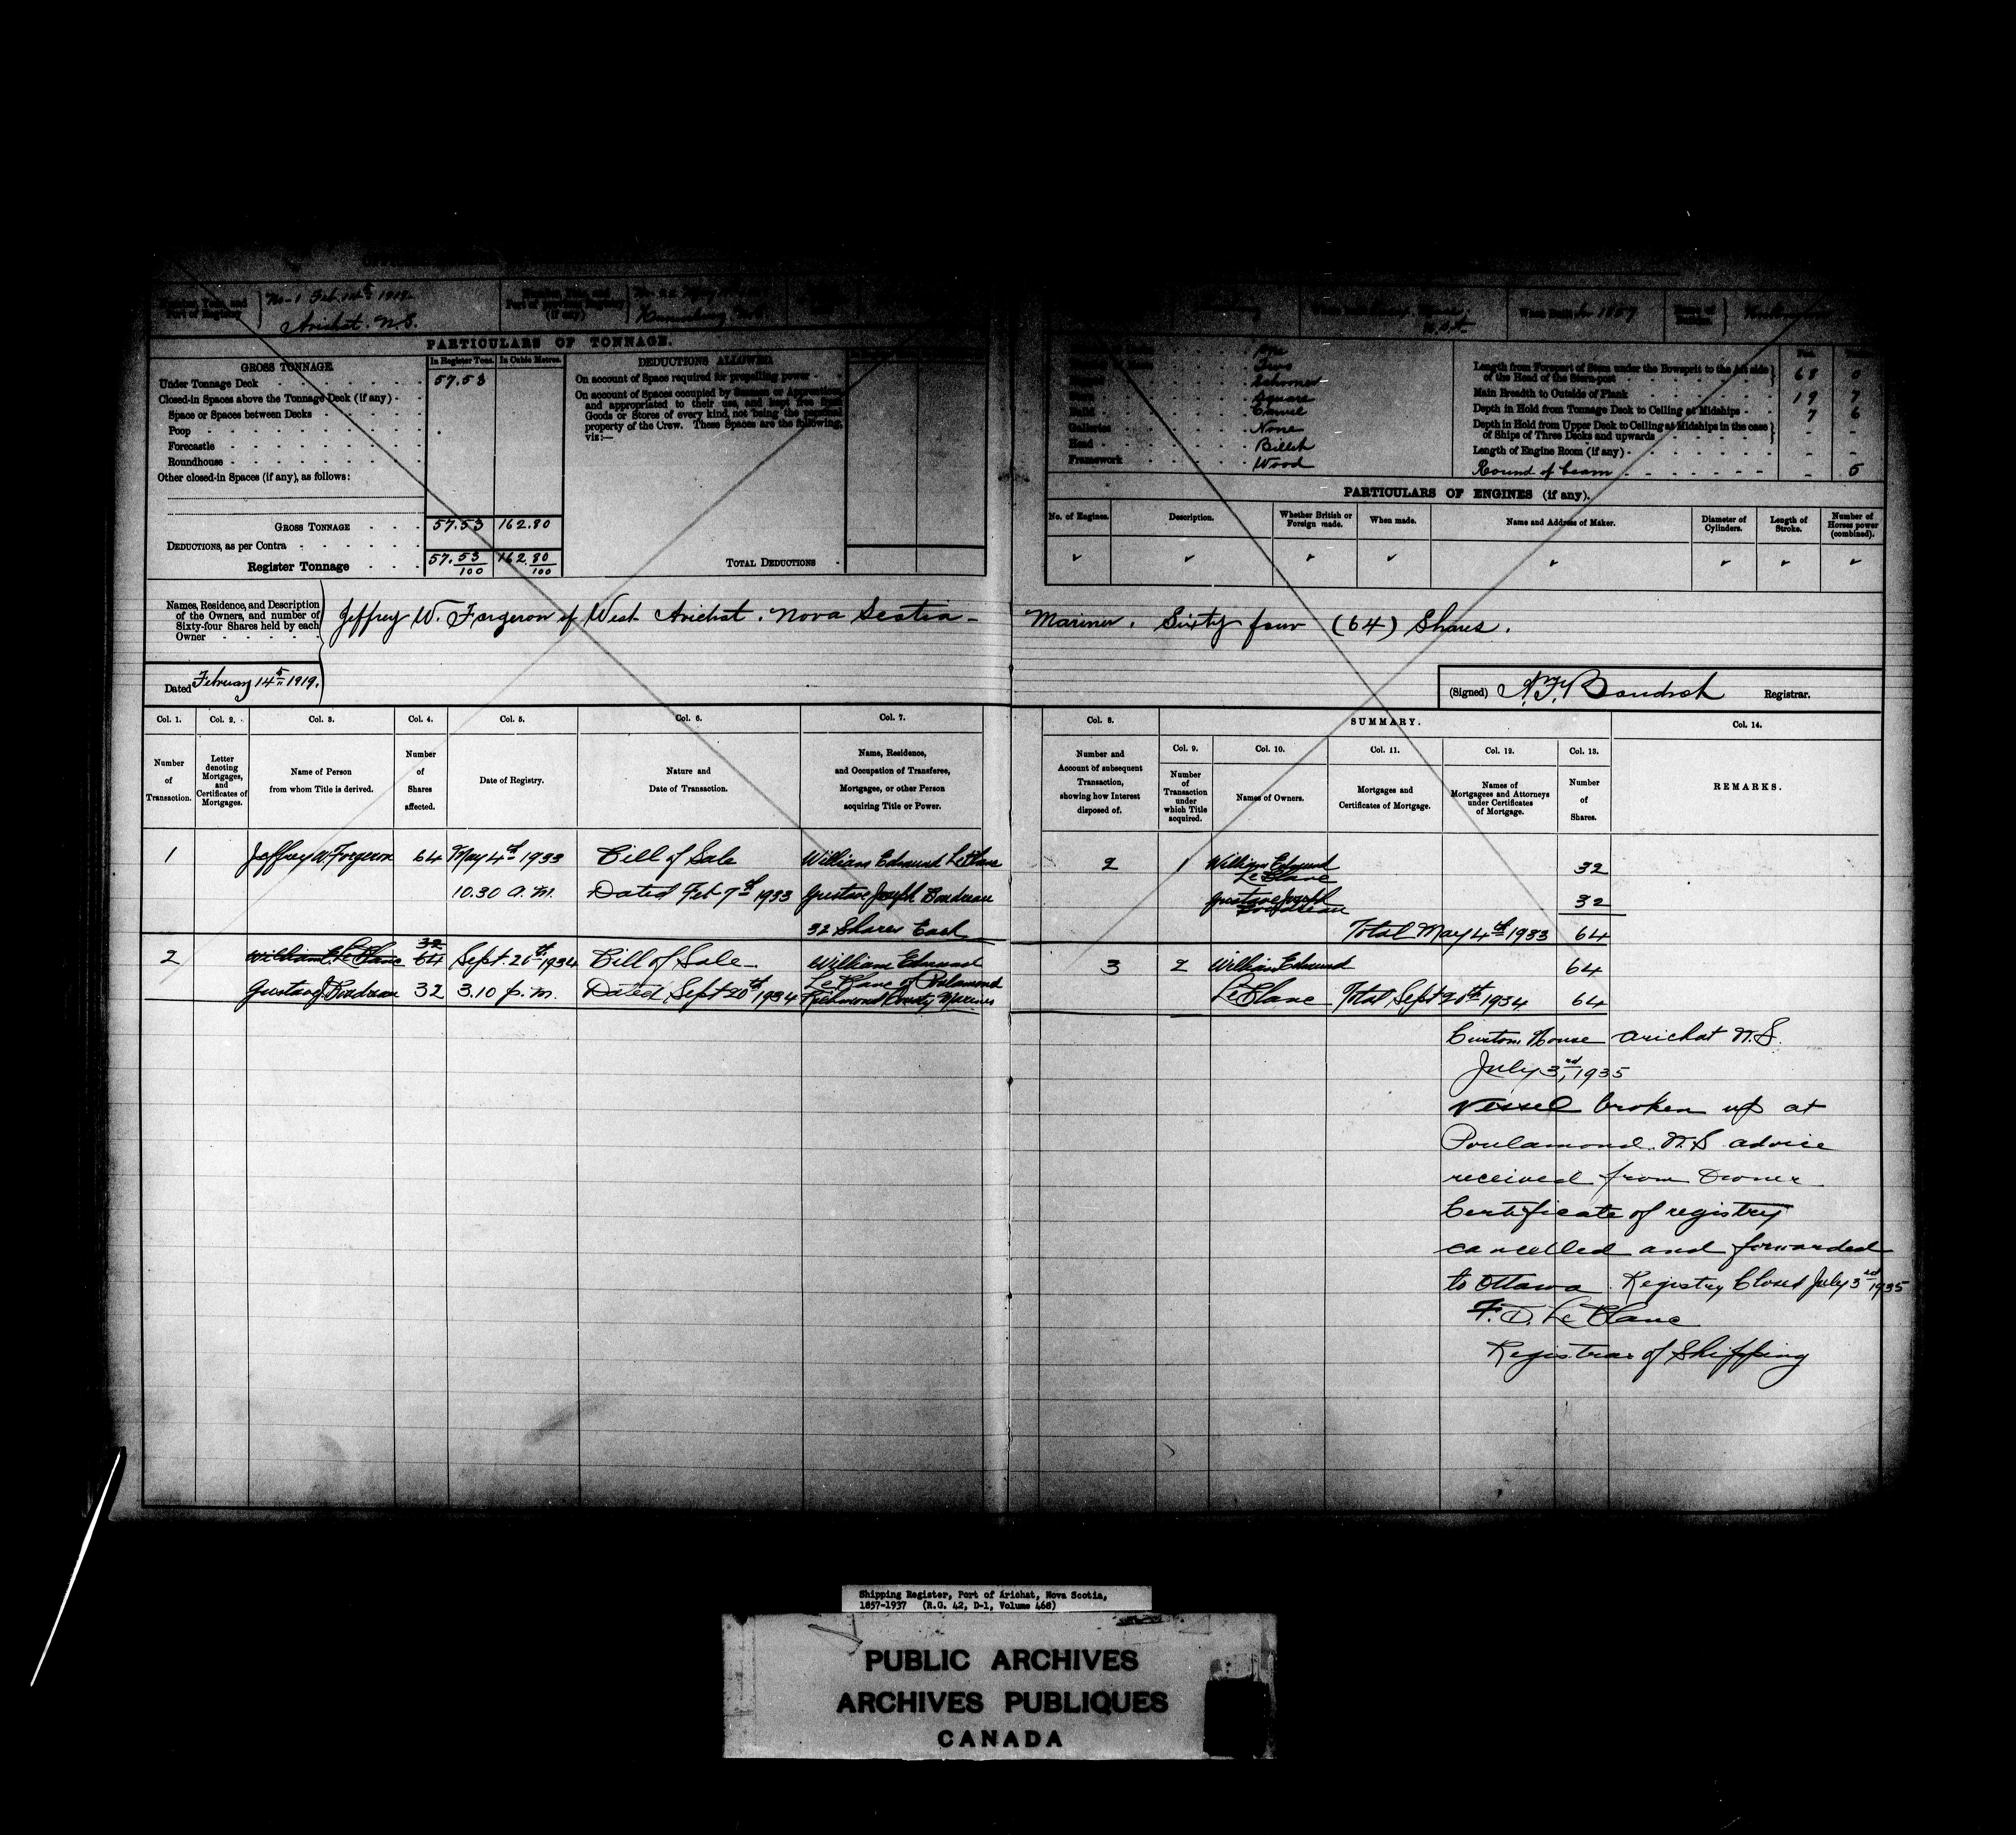 No-1 Feb 14th 1919.
Port of Registry
Arichat. N.S.
PARTICULARS OF TONNAGE.
GROSS TONNAGE.
In Register Tons.
In Cubic Metres.
Under Tonnage Deck
57.53
Closed-in Spaces above the Tonnage Deck (if any)
Space or Spaces between Decks
Poop
Forecastle
Roundhouse
Other closed-in Spaces (if any), as follows:
GROSS TONNAGE
57.53
162.80
DEDUCTIONS, as per Contra
Register Tonnage
57.53/100
162.80/100
DEDUCTIONS ALLOWED.
On account of Space required for propelling power
On account of Spaces occupied by Seamen or Appropriated
and appropriated to their use, and kept free from
Goods or Stores of every kind, not being the personal
property of the Crew. These Spaces are the following,
viz:—
TOTAL DEDUCTIONS
One
Two
Schooner
Square
Carvel
Galleries
None
Head
Billet
Framework
Wood
Length from Forepart of Stem under the Bowsprit to the Aft side
of the Head of the Stern-post
68 0
Main Breadth to Outside of Plank
19 7
Depth in Hold from Tonnage Deck to Ceiling at Midships
7 6
Depth in Hold from Upper Deck to Ceiling at Midships in the case
of Ships of Three Decks and upwards
Length of Engine Room (if any)
Round of beam
5
PARTICULARS OF ENGINES (if any).
No. of Engines.
Description.
Whether British or
Foreign made.
When made.
Name and Address of Maker.
Diameter of
Cylinders.
Length of
Stroke.
Number of
Horses power
(combined).
Names, Residence, and Description
of the Owners, and number of
Sixty-four Shares held by each
Owner
Jeffrey W. Forgeron of West Arichat. Nova Scotia - Mariner. Sixty four (64) Shares.
Dated February 14th 1919.
(Signed) Boudrot Registrar.
Col. 1.
Number
of
Transaction.
Col. 2.
Letter
denoting
Mortgages,
and
Certificates of
Mortgages.
Col. 3.
Name of Person
from whom Title is derived.
Col. 4.
Number
of
Shares
affected.
Col. 5.
Date of Registry.
Col. 6.
Nature and
Date of Transaction.
Col. 7.
Name, Residence,
and Occupation of Transferee,
Mortgagee, or other Person
acquiring Title or Power.
Col. 8.
Number and
Account of subsequent
Transaction,
showing how Interest
disposed of.
SUMMARY.
Col. 9.
Number
of
Transaction
under
which Title
acquired.
Col. 10.
Names of Owners.
Col. 11.
Mortgages and
Certificates of Mortgage.
Col. 12.
Names of
Mortgagees and Attorneys
under Certificates
of Mortgage.
Col. 13.
Number
of
Shares.
Col. 14.
REMARKS.
1 Jeffrey W. Forgeron 64 May 4th 1933 Bill of Sale William Edmund LeBlanc
10.30 a.m. Dated Feb 7th 1933 Gustave Joseph Boudreau
32 Shares Each
2 1 William Edmund
LeBlanc
32
Gustave Joseph
Boudreau
32
Total May 4th 1933 64
2 William E. LeBlanc 32 64 Sept. 20th 1934 Bill of Sale William Edmund
LeBlanc of Poulamond
Gustav J. Boudreau 32 3.10 p.m. Dated Sept 20th 1934 Richmond County Mariner
3 2 William Edmund 64
LeBlanc Total Sept 20th 1934 64
Custom House Arichat N.S.
July 3rd, 1935
Vessel broken up at
Poulamond. N.S advice
received from Owner
Certificate of registry
cancelled and forwarded
to Ottawa. Registry Closed July 3rd 1935
F. D. LeBlanc
Registrar of Shipping
Shipping Register, Port of Arichat, Nova Scotia,
1857-1937 (R.G. 42, D-1, Volume 468)
PUBLIC ARCHIVES
ARCHIVES PUBLIQUES
CANADA